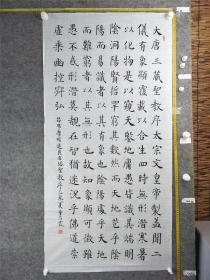 大唐三藏聖教序太宗文皇帝製蓋聞二
儀有象顯覆載以含生四時無形潛寒暑
以化物是以窺天鑒地庸愚皆識其端明
陰洞陽賢哲罕窮其數然而天地苞乎陰
陽而易識者以其有象也陰陽處乎天地
而難窮者以其無形也故知象顯可徵雖
愚不惑形潛莫覩在智猶迷況乎佛道崇
虛乘幽控寂弘
節臨唐褚遂良雁塔聖教序